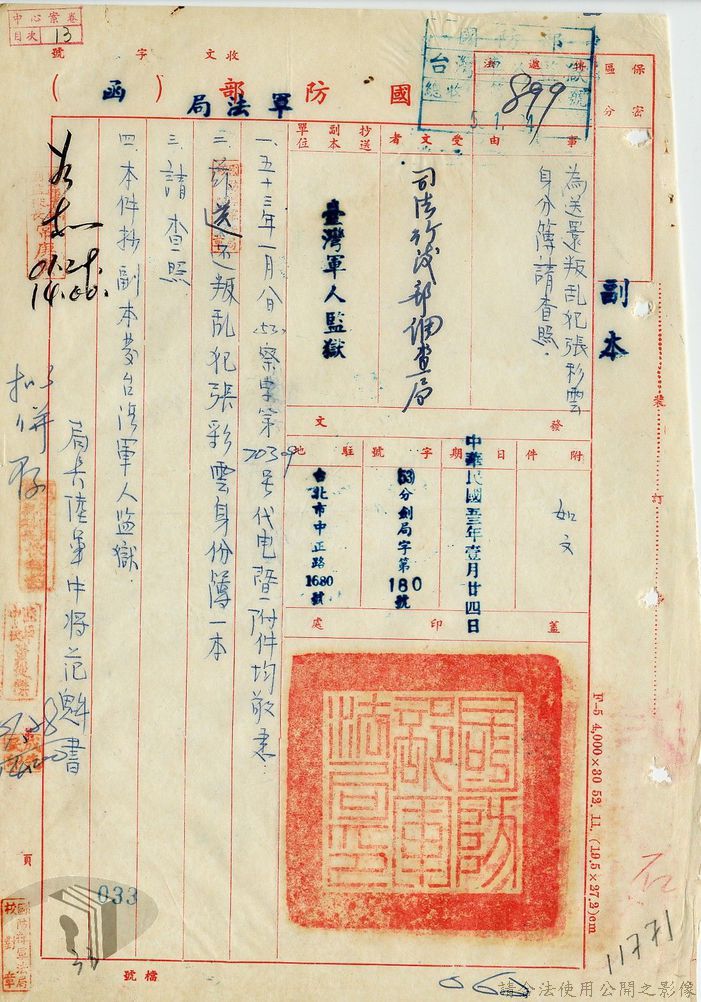 中心案卷
目次 13
號 字 文 收
國防部軍法局（函）
899
保密區分
副本
事由
為送還叛乱犯張彩雲
身分簿請查照．
受文者
司法行政部調查局
抄送副本單位
臺灣軍人監獄
發文
附件
如文
日期
中華民國五三年壹月廿四日
字號
(53)分剑局字第180號
駐地
台北市中正路1680號
蓋印處
國防部軍法局印
一、五十三年一月八日(53)察字第7039号代电暨附件均敬悉．
二、送还叛乱犯張彩雲身份簿一本
三、請查照
四、本件抄副本发台湾軍人監獄．
局長陸軍中將范魁書
擬併存
01.28.
14.00.
裝
訂
F—5 4,000×30 52. 11. (19.5×27.2)cm
頁
033
33
國防部軍法局
校對章
檔號
11771
請合法使用公開之影像